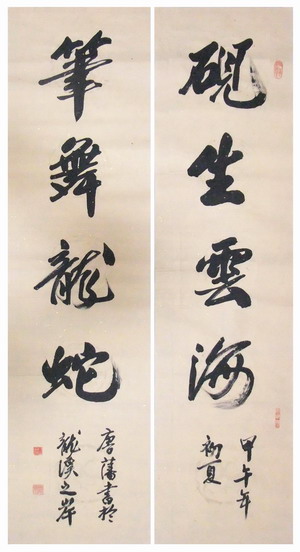 硯坐雲海
甲午年
初夏
筆舞龍蛇
唐藩書於
龍溪之岸